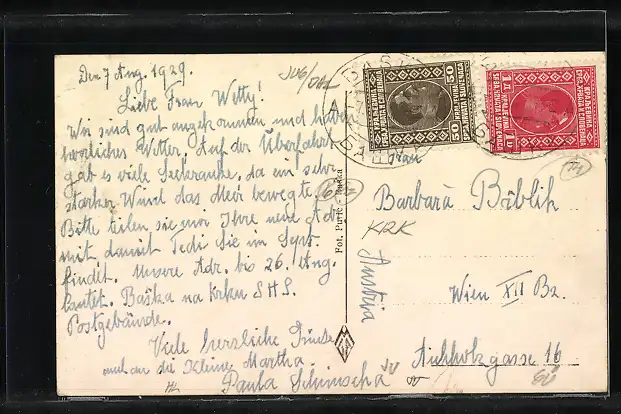 Den 7 Aug. 1929.
Liebe Frau Wetty!
Wir sind gut angekommen und haben
herrliches Wetter. Auf der Überfahrt
gab es viele Seekranke, da ein sehr
starker Wind das Meer bewegte.
Bitte teilen sie mir Ihre neue Adr.
mit damit Fedi Sie im Sept.
findet. Unsere Adr. bis 26. Aug.
lautet. Baška na Krku S.H.S.
Postgebäude.
Viele herzliche Grüsse
auch an die Kleine Martha
Paula
Fot. Purić - Baška
50 50
1 Д 1 D
Frau
Barbara Bablik
KRK
Austrija
Wien XII Bz.
Aichholzgasse 16